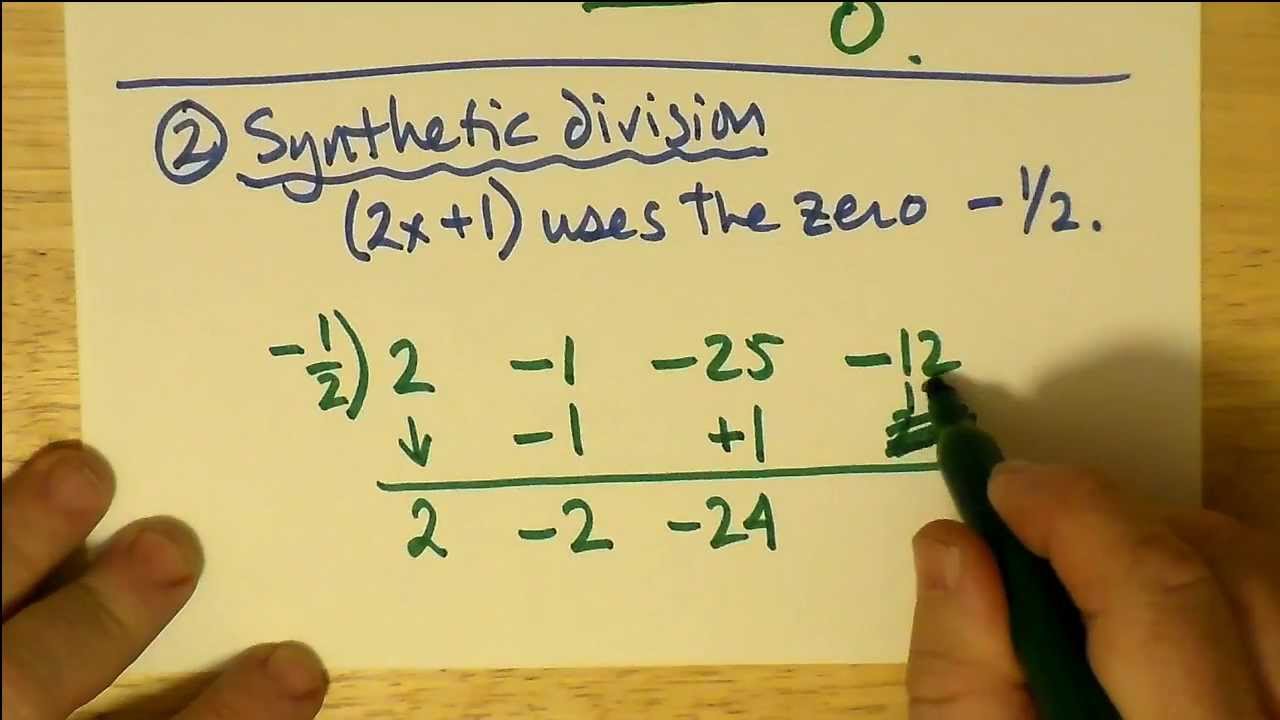 0.
② Synthetic division
(2x+1) uses the zero -1/2.
-1/2) 2 -1 -25 -12
↓ -1 +1
2 -2 -24